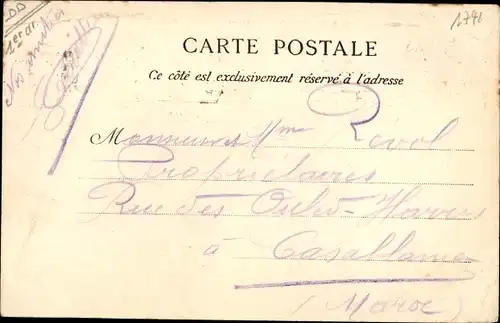 1741
1er
Nos amitiés
CARTE POSTALE
Ce côté est exclusivement réservé à l'adresse
Monsieur et Mme Révol
Propriétaires
Rue des Ouled-Harris
à Casablanca
(Maroc)